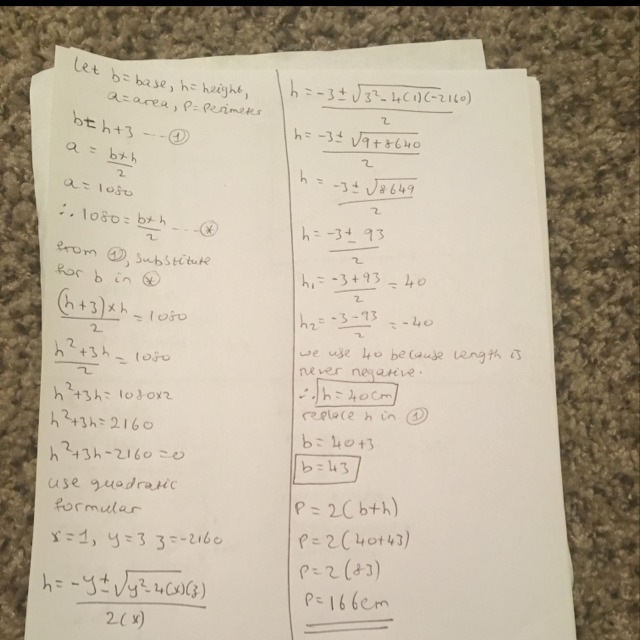 Let b=base, h=height,
a=area, P=perimeter
b= h+3 ---- ①
a = b×h/2
a = 1080
∴ 1080 = b×h/2 ---- ⊛
From ①, substitute
for b in ⊛
(h+3)×h/2 = 1080
h²+3h/2 = 1080
h²+3h = 1080×2
h²+3h = 2160
h²+3h-2160=0
use quadratic
formular
x=1, y=3 z=-2160
h = -y±√y²-4(x)(z)/2(x)
h = -3±√3²-4(1)(-2160)/2
h = -3±√9+8640/2
h = -3±√8649/2
h = -3±93/2
h₁ = -3+93/2 = 40
h₂ = -3-93/2 = -40
we use 40 because length is
never negative.
∴ h=40cm
replace h in ①
b = 40+3
b = 43
P = 2(b+h)
P = 2(40+43)
P = 2(83)
P = 166cm